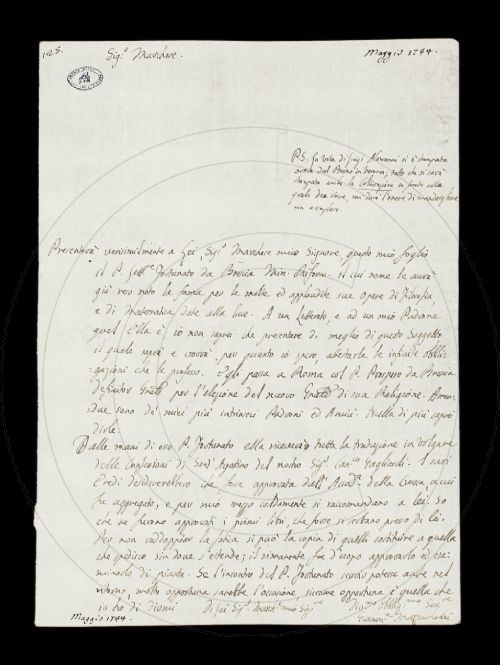 125.
Sig.r Marchese.
Maggio 1744.
P.S. La Vita di Luigi Alamanni si è stampata
in Verona; tosto che si sarà
stampata anche la Coltivazione in fronte alla
quale dee stare, mi darò l'onore di mandargliene
un esemplare.
Presenterà umilmente a Lei, Sig.r Marchese mio Signore, questo mio foglio
il P. Lett.re Fortunato da Brescia Min. Riform. il cui nome le avrà
già reso noto la fama per le molte ed applaudite sue Opere di Filosofia,
e di Matematica date alla luce. A un Letterato, e ad un mio Padrone
qual Ella è io non saprei che presentare di meglio di questo Soggetto
il quale saprà e vorrà, per quanto io spero, attestarle le infinite obbli-
gazioni che le professo. Egli passa a Roma col P. Prospero da Brescia
Definitor Gnãle per l'elezione del nuovo Gnãle di sua Religione. Amen-
due sono de' miei più intrinseci Padroni ed Amici. Nulla di più saprei
dirle.
Dalle mani di esso P. Fortunato ella riceverà tutta la traduzione in volgare
delle Confessioni di Sant'Agostino del nostro Sig.r Can.co Gagliardi. I suoi
Eredi desidererebbero che fosse approvata dall'Accad.a della Crusca a cui
fu aggregato, e per mio mezzo caldamente si raccomandano a Lei. So
che ne furono approvati i primi libri, che forse si restano presso di Lei.
Per non raddoppiar la fatica si può la copia di quelli sostituire a quella
che spedisco sin dove s'estende; il rimanente fa d'uopo approvarlo ed esa-
minarlo di pianta. Se l'incontro del P. Fortunato servir potesse anche nel
ritorno, molto opportuna sarebbe l'occasione, siccome opportuna è quella che
io ho di dirmi
di Lei Sig.r March.e mio Sig.re
Maggio 1744.
Giammaria Mazzuchelli